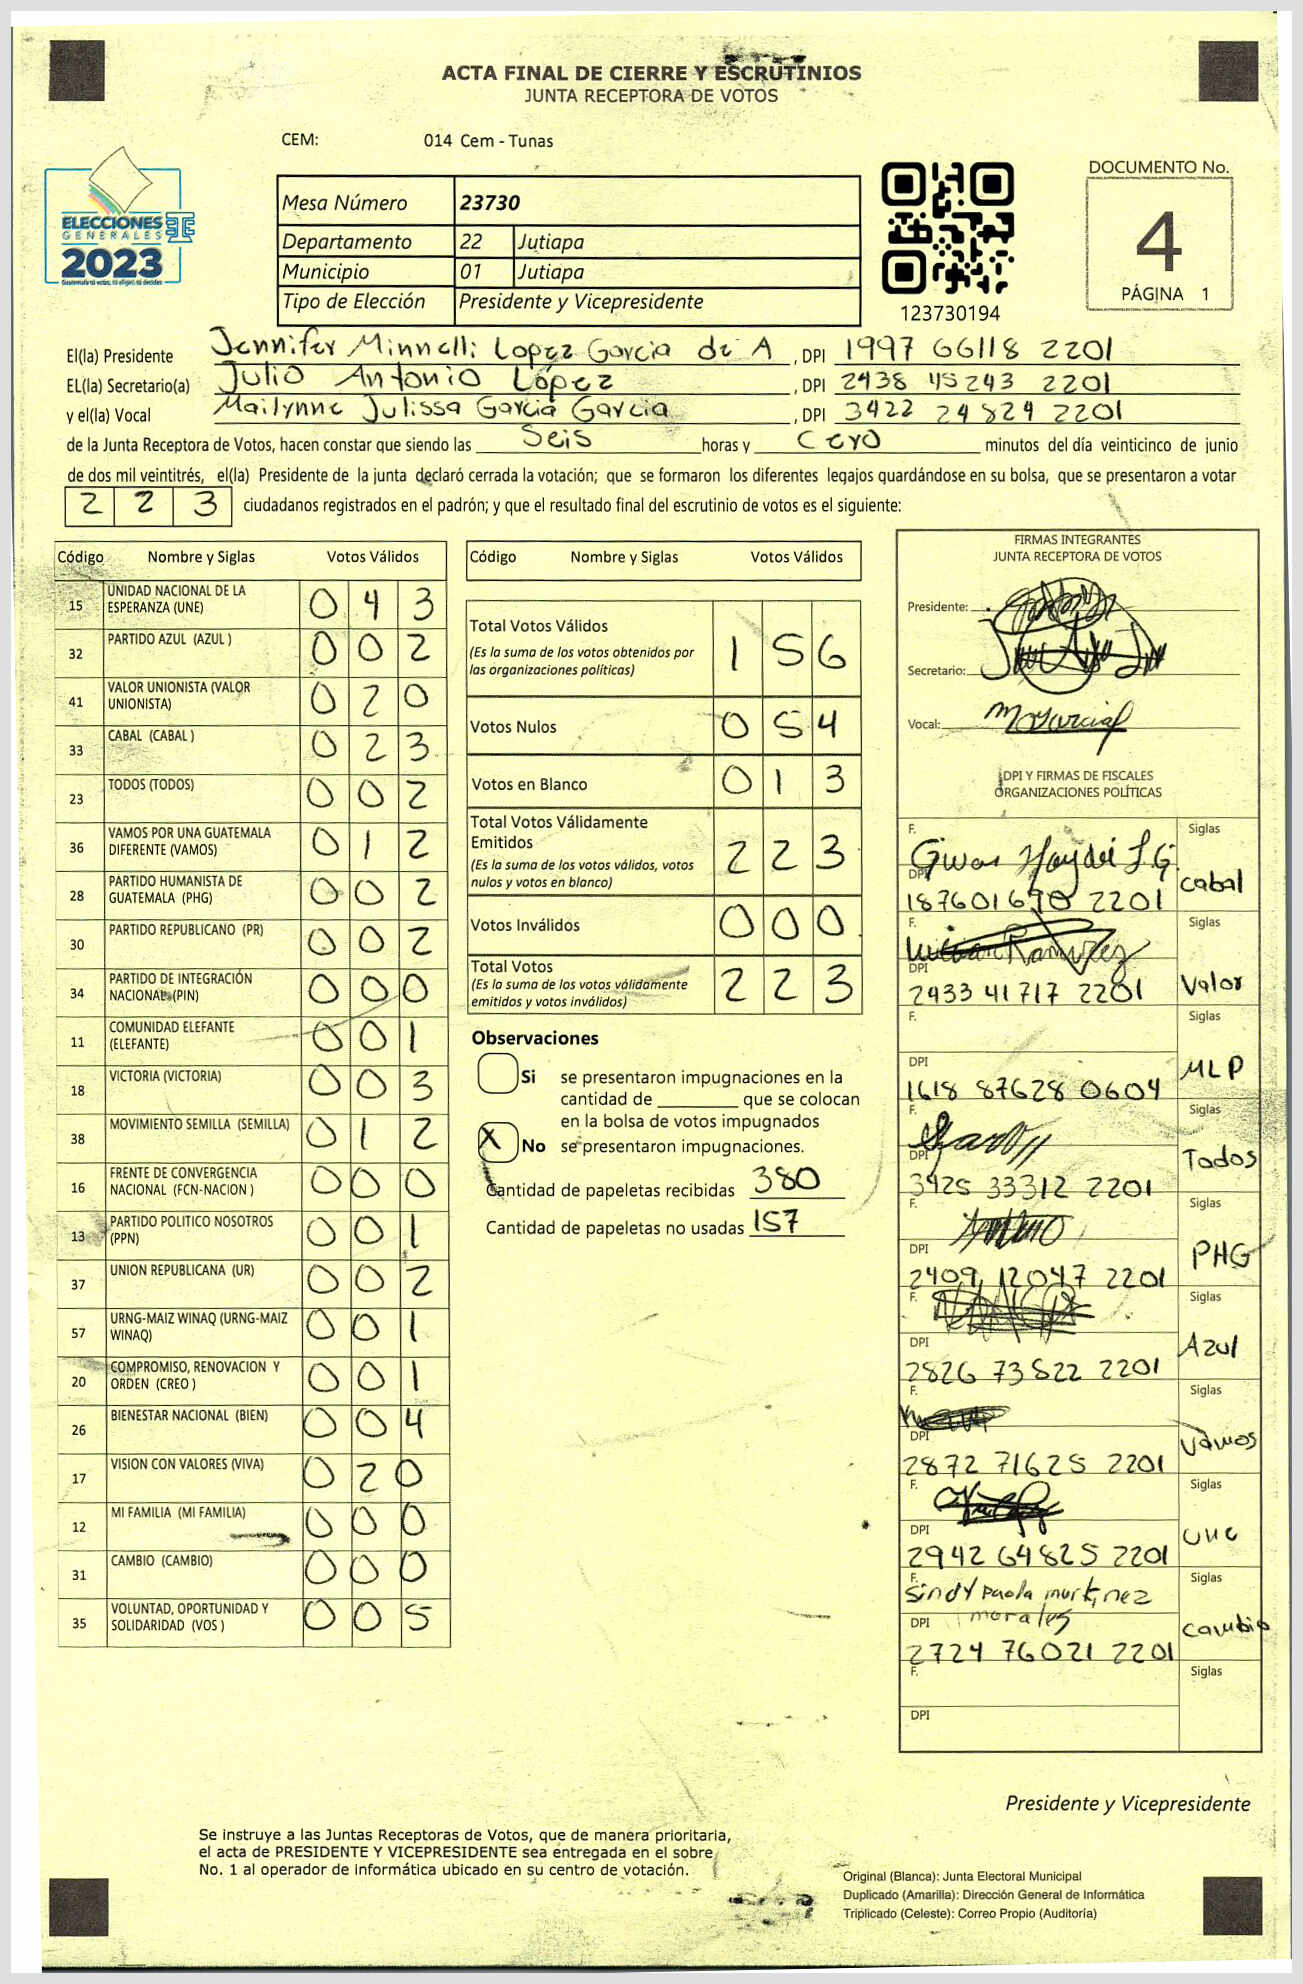 ACTA FINAL DE CIERRE Y ESCRUTINIOS
JUNTA RECEPTORA DE VOTOS
CEM: 014 Cem - Tunas
ELECCIONES
GENERALES
2023
Mesa Número 23730
Departamento 22 Jutiapa
Municipio 01 Jutiapa
Tipo de Elección Presidente y Vicepresidente
123730194
DOCUMENTO No.
4
PÁGINA 1
El(la) Presidente Jennifer Minnelli Lopez Garcia de A , DPI 1997 66118 2201
EL(la) Secretario(a) Julio Antonio López , DPI 2438 45243 2201
y el(la) Vocal Mailynne Julissa Garcia Garcia , DPI 3422 24824 2201
de la Junta Receptora de Votos, hacen constar que siendo las Seis horas y Cero minutos del día veinticinco de junio
de dos mil veintitrés, el(la) Presidente de la junta declaró cerrada la votación; que se formaron los diferentes legajos guardándose en su bolsa, que se presentaron a votar
2 2 3 ciudadanos registrados en el padrón; y que el resultado final del escrutinio de votos es el siguiente:
Código Nombre y Siglas Votos Válidos
15 UNIDAD NACIONAL DE LA ESPERANZA (UNE) 0 4 3
32 PARTIDO AZUL (AZUL ) 0 0 2
41 VALOR UNIONISTA (VALOR UNIONISTA) 0 2 0
33 CABAL (CABAL ) 0 2 3
23 TODOS (TODOS) 0 0 2
36 VAMOS POR UNA GUATEMALA DIFERENTE (VAMOS) 0 1 2
28 PARTIDO HUMANISTA DE GUATEMALA (PHG) 0 0 2
30 PARTIDO REPUBLICANO (PR) 0 0 2
34 PARTIDO DE INTEGRACIÓN NACIONAL (PIN) 0 0 0
11 COMUNIDAD ELEFANTE (ELEFANTE) 0 0 1
18 VICTORIA (VICTORIA) 0 0 3
38 MOVIMIENTO SEMILLA (SEMILLA) 0 1 2
16 FRENTE DE CONVERGENCIA NACIONAL (FCN-NACION ) 0 0 0
13 PARTIDO POLITICO NOSOTROS (PPN) 0 0 1
37 UNION REPUBLICANA (UR) 0 0 2
57 URNG-MAIZ WINAQ (URNG-MAIZ WINAQ) 0 0 1
20 COMPROMISO, RENOVACION Y ORDEN (CREO ) 0 0 1
26 BIENESTAR NACIONAL (BIEN) 0 0 4
17 VISION CON VALORES (VIVA) 0 2 0
12 MI FAMILIA (MI FAMILIA) 0 0 0
31 CAMBIO (CAMBIO) 0 0 0
35 VOLUNTAD, OPORTUNIDAD Y SOLIDARIDAD (VOS ) 0 0 5
Código Nombre y Siglas Votos Válidos
Total Votos Válidos 1 5 6
(Es la suma de los votos obtenidos por
las organizaciones políticas)
Votos Nulos 0 5 4
Votos en Blanco 0 1 3
Total Votos Válidamente
Emitidos 2 2 3
(Es la suma de los votos válidos, votos
nulos y votos en blanco)
Votos Inválidos 0 0 0
Total Votos 2 2 3
(Es la suma de los votos válidamente
emitidos y votos inválidos)
Observaciones
Si se presentaron impugnaciones en la
cantidad de ________ que se colocan
en la bolsa de votos impugnados
X No se presentaron impugnaciones.
Cantidad de papeletas recibidas 380
Cantidad de papeletas no usadas 157
FIRMAS INTEGRANTES
JUNTA RECEPTORA DE VOTOS
Presidente:
Secretario:
Vocal:
DPI Y FIRMAS DE FISCALES
ORGANIZACIONES POLÍTICAS
F. Siglas
DPI 187601690 2201 cabal
F. Ramirez Siglas
DPI 2433 41717 2201 Valor
F. Siglas
DPI 1618 87628 0604 MLP
F. Siglas
DPI 3425 33312 2201 Todos
F. Siglas
DPI 2409 12047 2201 PHG
F. Siglas
DPI 2826 73822 2201 Azul
F. Siglas
DPI 2872 71625 2201 Vamos
F. Siglas
DPI 2942 64825 2201 une
F. Sindy Paola martinez morales Siglas
DPI 2724 76021 2201 cambio
F. Siglas
DPI
Presidente y Vicepresidente
Se instruye a las Juntas Receptoras de Votos, que de manera prioritaria,
el acta de PRESIDENTE Y VICEPRESIDENTE sea entregada en el sobre
No. 1 al operador de informática ubicado en su centro de votación.
Original (Blanca): Junta Electoral Municipal
Duplicado (Amarilla): Dirección General de Informática
Triplicado (Celeste): Correo Propio (Auditoría)